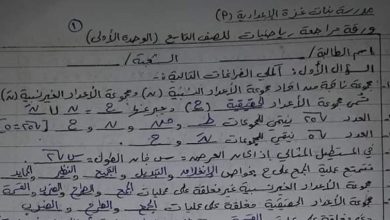 مدرسة بنات غزة الإعدادية (P)
ورقة مراجعة رياضيات للصف التاسع (الوحدة الأولى)
اسم الطالبة / الشعبة /
السؤال الأول: أكملي الفراغات التالية:
مجموعة ناتجة من اتحاد مجموعة الأعداد النسبية (ن) ومجموعة الأعداد الغير نسبية (نَ)
تسمى مجموعة الأعداد الحقيقية (ح) ح = ن U نَ
العدد ٢٥√ ينتمي للمجموعات ط و ص و ن و ح
العدد ينتمي للمجموعات نَ و ح
في المستطيل المثالي إذا كان العرض = س فإن الطول =
تتمتع عملية الجمع على ح بخواص الانغلاق و التبديل و التجميع و النظير و المحايد
مجموعة الأعداد الغير نسبية غير مغلقة على عمليات الجمع و الطرح و الضرب و القسمة
مغلقة على عمليات الجمع و الطرح و الضرب